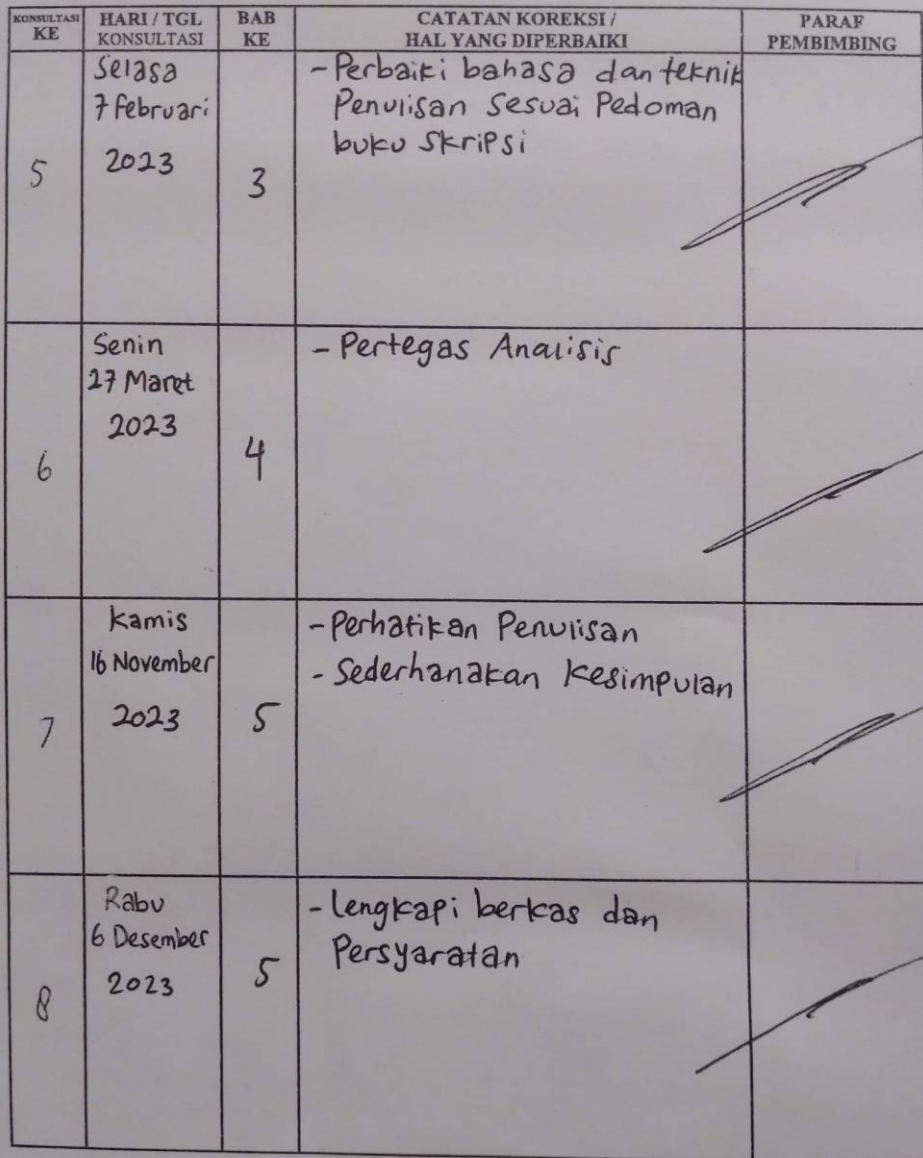 KONSULTASI KE HARI / TGL KONSULTASI BAB KE CATATAN KOREKSI / HAL YANG DIPERBAIKI PARAF PEMBIMBING
5
Selasa
7 Februari
2023
3
- Perbaiki bahasa dan teknik
Penulisan Sesuai Pedoman
buku Skripsi
6
Senin
27 Maret
2023
4
- Pertegas Analisis
7
Kamis
16 November
2023
5
- Perhatikan Penulisan
- Sederhanakan Kesimpulan
8
Rabu
6 Desember
2023
5
- Lengkapi berkas dan
Persyaratan